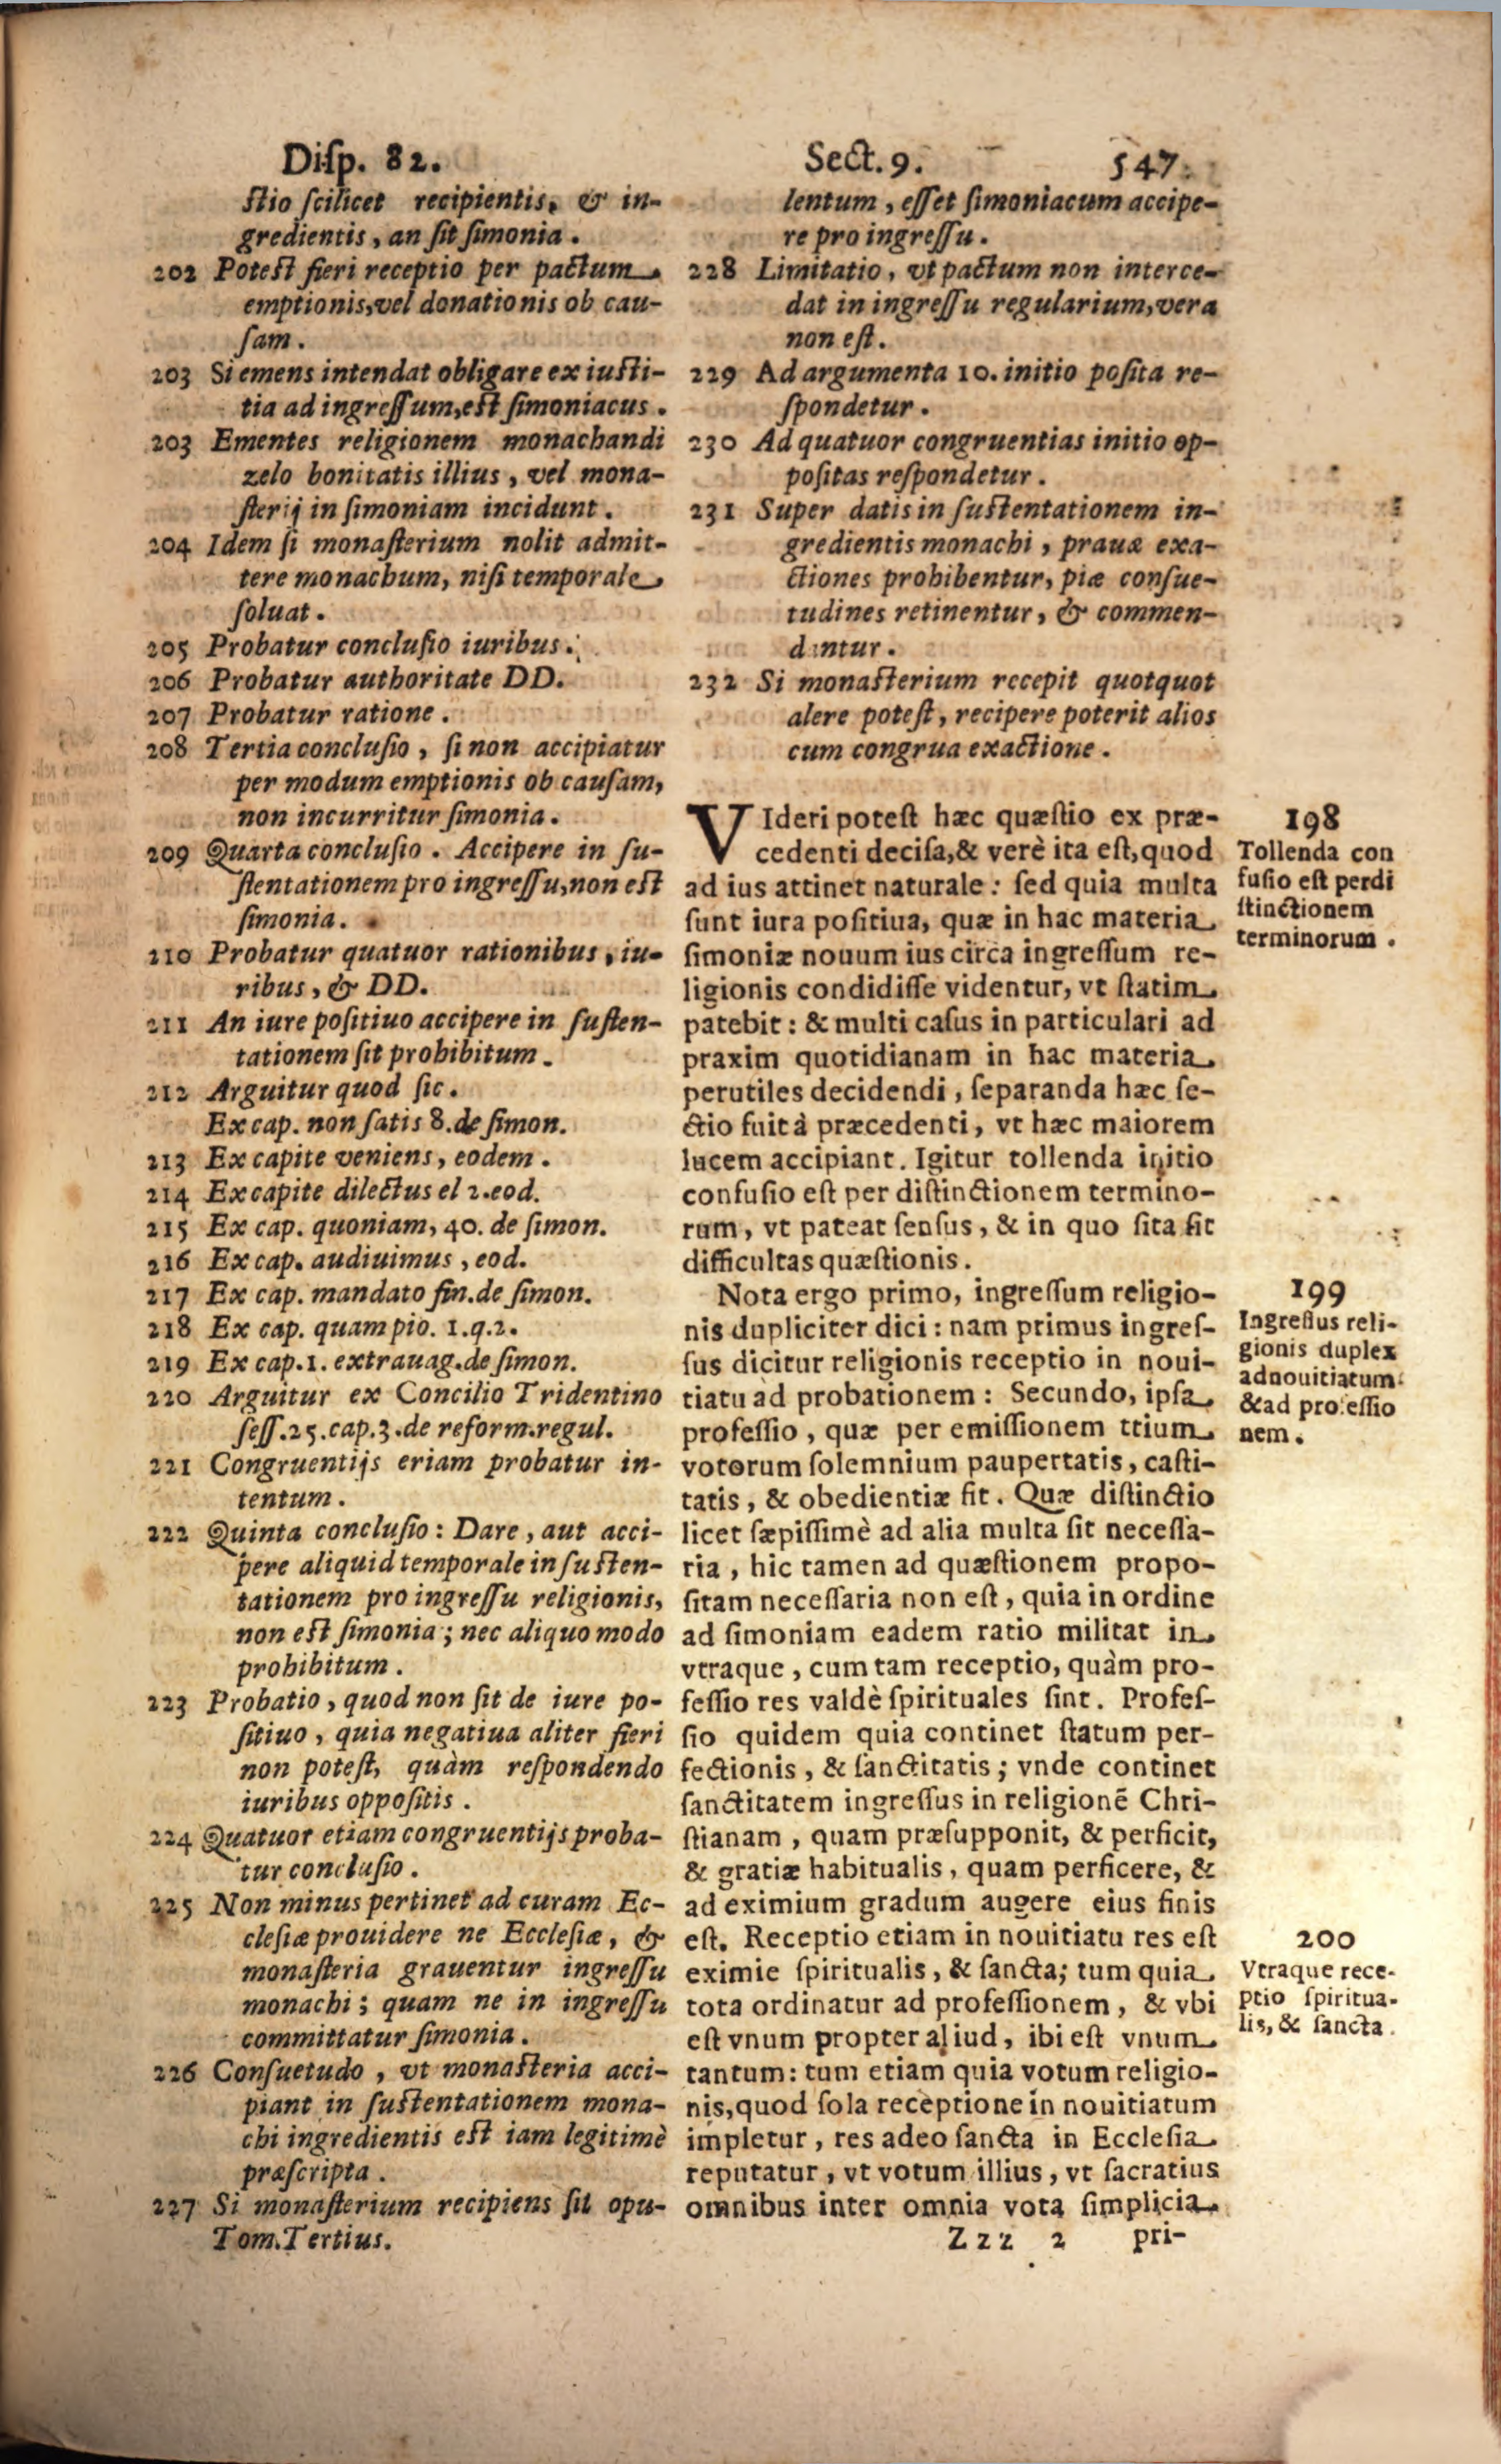 Diſp. 82. Sect. 9. 547
ſtio ſcilicet recipientis, & in-
gredientis, an ſit ſimonia.
202 Poteſt fieri receptio per pactum
emptionis, vel donationis ob cau-
ſam.
203 Si emens intendat obligare ex iuſti-
tia ad ingreſſum, eſt ſimoniacus.
203 Ementes religionem monachandi
zelo bonitatis illius, vel mona-
ſterij in ſimoniam incidunt.
204 Idem ſi monaſterium nolit admit-
tere monachum, niſi temporale
ſoluat.
205 Probatur concluſio iuribus.
206 Probatur authoritate DD.
207 Probatur ratione.
208 Tertia concluſio, ſi non accipiatur
per modum emptionis ob cauſam,
non incurritur ſimonia.
209 Quarta concluſio. Accipere in ſu-
ſtentationem pro ingreſſu, non eſt
ſimonia.
210 Probatur quatuor rationibus, iu-
ribus, & DD.
211 An iure poſitiuo accipere in ſuſten-
tationem ſit prohibitum.
212 Arguitur quod ſic.
Ex cap. non ſatis 8. de ſimon.
213 Ex capite veniens, eodem.
214 Ex capite dilectus el 2. eod.
215 Ex cap. quoniam, 40. de ſimon.
216 Ex cap. audiuimus, eod.
217 Ex cap. mandato fin. de ſimon.
218 Ex cap. quam pio. 1. q. 2.
219 Ex cap. 1. extrauag. de ſimon.
220 Arguitur ex Concilio Tridentino
ſeſſ. 25. cap. 3. de reform. regul.
221 Congruentijs eriam probatur in-
tentum.
222 Quinta concluſio: Dare, aut acci-
pere aliquid temporale in ſuſten-
tationem pro ingreſſu religionis,
non eſt ſimonia; nec aliquo modo
prohibitum.
223 Probatio, quod non ſit de iure po-
ſitiuo, quia negatiua aliter fieri
non poteſt, quàm reſpondendo
iuribus oppoſitis.
224 Quatuor etiam congruentijs proba-
tur concluſio.
225 Non minus pertinet ad curam Ec-
cleſiæ prouidere ne Eccleſiæ, &
monaſteria grauentur ingreſſu
monachi; quam ne in ingreſſu
committatur ſimonia.
226 Conſuetudo, vt monaſteria acci-
piant in ſuſtentationem mona-
chi ingredientis eſt iam legitimè
præſcripta.
227 Si monaſterium recipiens ſit opu-
Tom. Tertius.
lentum, eſſet ſimoniacum accipe-
re pro ingreſſu.
228 Limitatio, vt pactum non interce-
dat in ingreſſu regularium, vera
non eſt.
229 Ad argumenta 10. initio poſita re-
ſpondetur.
230 Ad quatuor congruentias initio op-
poſitas reſpondetur.
231 Super datis in ſuſtentationem in-
gredientis monachi, prauæ exa-
ctiones prohibentur, piæ conſue-
tudines retinentur, & commen-
dantur.
232 Si monaſterium recepit quotquot
alere poteſt, recipere poterit alios
cum congrua exactione.
VIderi poteſt hæc quæſtio ex præ-
cedenti deciſa, & verè ita eſt, quod
ad ius attinet naturale: ſed quia multa
ſunt iura poſitiua, quæ in hac materia
ſimoniæ nouum ius circa ingreſſum re-
ligionis condidiſſe videntur, vt ſtatim
patebit: & multi caſus in particulari ad
praxim quotidianam in hac materia
perutiles decidendi, ſeparanda hæc ſe-
ctio fuit à præcedenti, vt hæc maiorem
lucem accipiant. Igitur tollenda initio
confuſio eſt per diſtinctionem termino-
rum, vt pateat ſenſus, & in quo ſita ſit
difficultas quæſtionis.
Nota ergo primo, ingreſſum religio-
nis dupliciter dici: nam primus ingreſ-
ſus dicitur religionis receptio in noui-
tiatu ad probationem: Secundo, ipſa
profeſſio, quæ per emiſſionem trium
votorum ſolemnium paupertatis, caſti-
tatis, & obedientiæ fit. Quæ diſtinctio
licet ſæpiſſimè ad alia multa ſit neceſſa-
ria, hic tamen ad quæſtionem propo-
ſitam neceſſaria non eſt, quia in ordine
ad ſimoniam eadem ratio militat in
vtraque, cum tam receptio, quàm pro-
feſſio res valdè ſpirituales ſint. Profeſ-
ſio quidem quia continet ſtatum per-
fectionis, & ſanctitatis; vnde continet
ſanctitatem ingreſſus in religionē Chri-
ſtianam, quam præſupponit, & perficit,
& gratiæ habitualis, quam perficere, &
ad eximium gradum augere eius finis
eſt. Receptio etiam in nouitiatu res eſt
eximie ſpiritualis, & ſancta; tum quia
tota ordinatur ad profeſſionem, & vbi
eſt vnum propter aliud, ibi eſt vnum
tantum: tum etiam quia votum religio-
nis, quod ſola receptione in nouitiatum
impletur, res adeo ſancta in Eccleſia
reputatur, vt votum illius, vt ſacratius
omnibus inter omnia vota ſimplicia
Zzz 2 pri-
198
Tollenda con
fuſio eſt per di
ſtinctionem
terminorum.
199
Ingreſſus reli-
gionis duplex
ad nouitiatum
& ad profeſſio
nem.
200
Vtraque rece-
ptio ſpiritua-
lis, & ſancta.